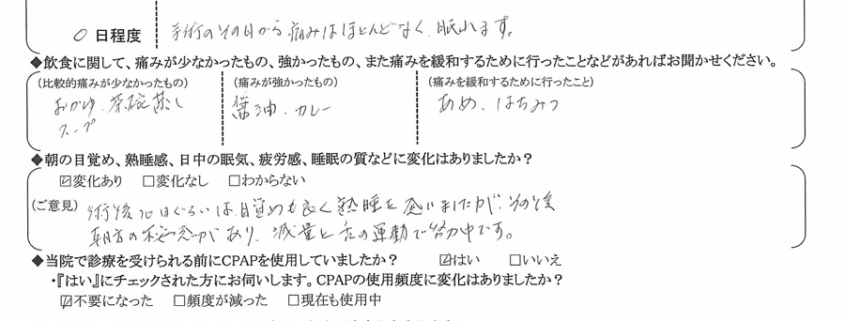 0 日程度 手術のその日から痛みはほとんどなく、眠れます。
◆飲食に関して、痛みが少なかったもの、強かったもの、また痛みを緩和するために行ったことなどがあればお聞かせください。
(比較的痛みが少なかったもの) (痛みが強かったもの) (痛みを緩和するために行ったこと)
おかゆ、茶碗蒸し 醤油、カレー あめ、はちみつ
スープ
◆朝の目覚め、熟睡感、日中の眠気、疲労感、睡眠の質などに変化はありましたか?
☑変化あり □変化なし □わからない
(ご意見) 術後10日ぐらいは、目覚めも良く熟睡を感いましたが、その後
朝方の があり、減量と舌の運動で努力中です。
◆当院で診療を受けられる前にCPAPを使用していましたか? ☑はい □いいえ
・『はい』にチェックされた方にお伺いします。CPAPの使用頻度に変化はありましたか?
☑不要になった □頻度が減った □現在も使用中